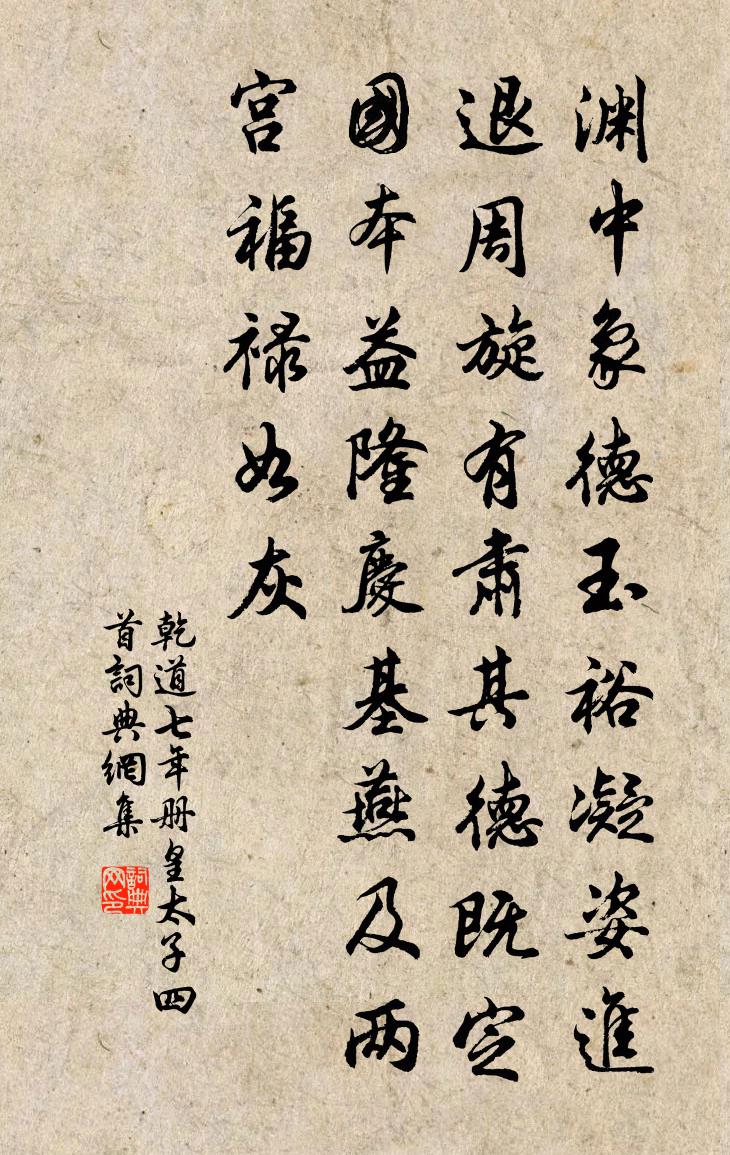 渊中象德玉裕凝姿進
退周旋有肅其德既定
國本益隆慶基燕及两
宫福禄如灰
乾道七年册皇太子四
首詞典網集
詞典網印